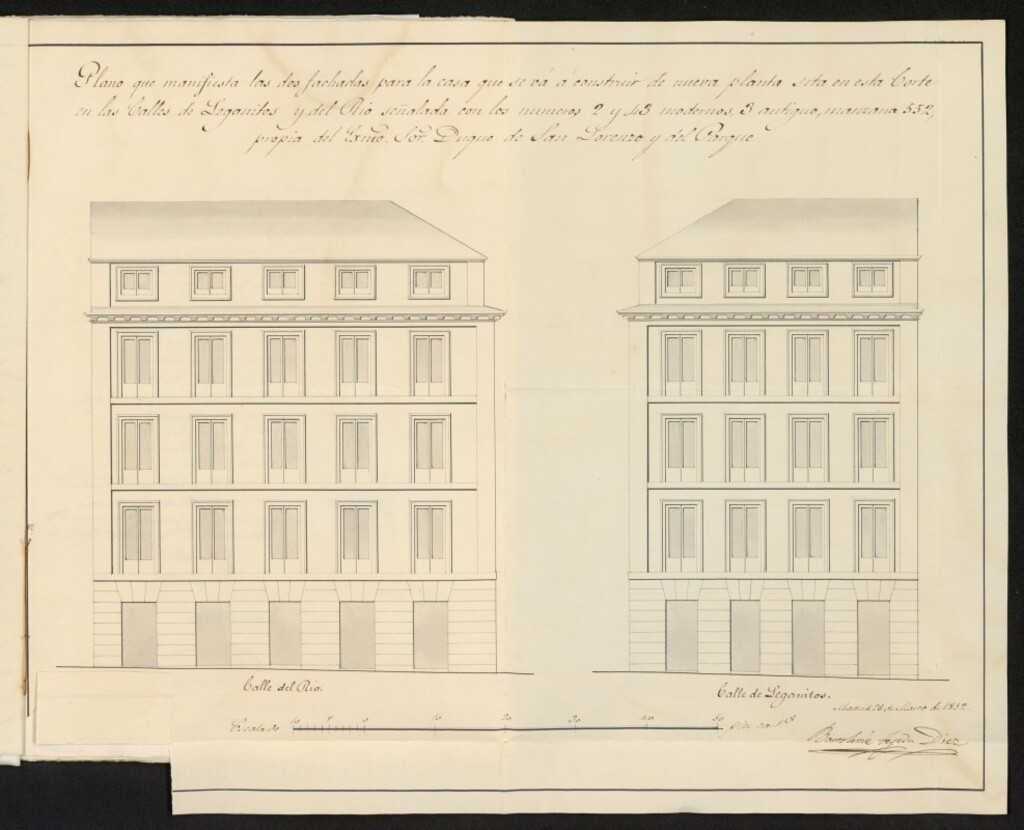 Plano que manifiesta las dos fachadas para la casa que se vá á construir de nueva planta sita en esta Corte
en las Calles de Leganitos y del Rio señalada con los numeros 2 y 43 modernos, 3 antiguo, manzana 552,
propia del Exmo. Sor. Duque de San Lorenzo y del Parque
Calle del Rio.
Calle de Leganitos.
Madrid 26 de Marzo de 1852.
Escala de 10 5 0 10 20 30 40 50 pies
Bartolomé Tejeda Diez